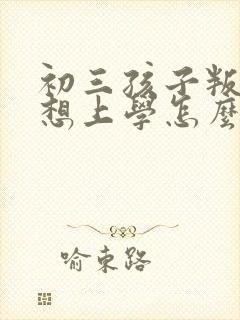 初三孩子叛
想上學怎麼
喻東路